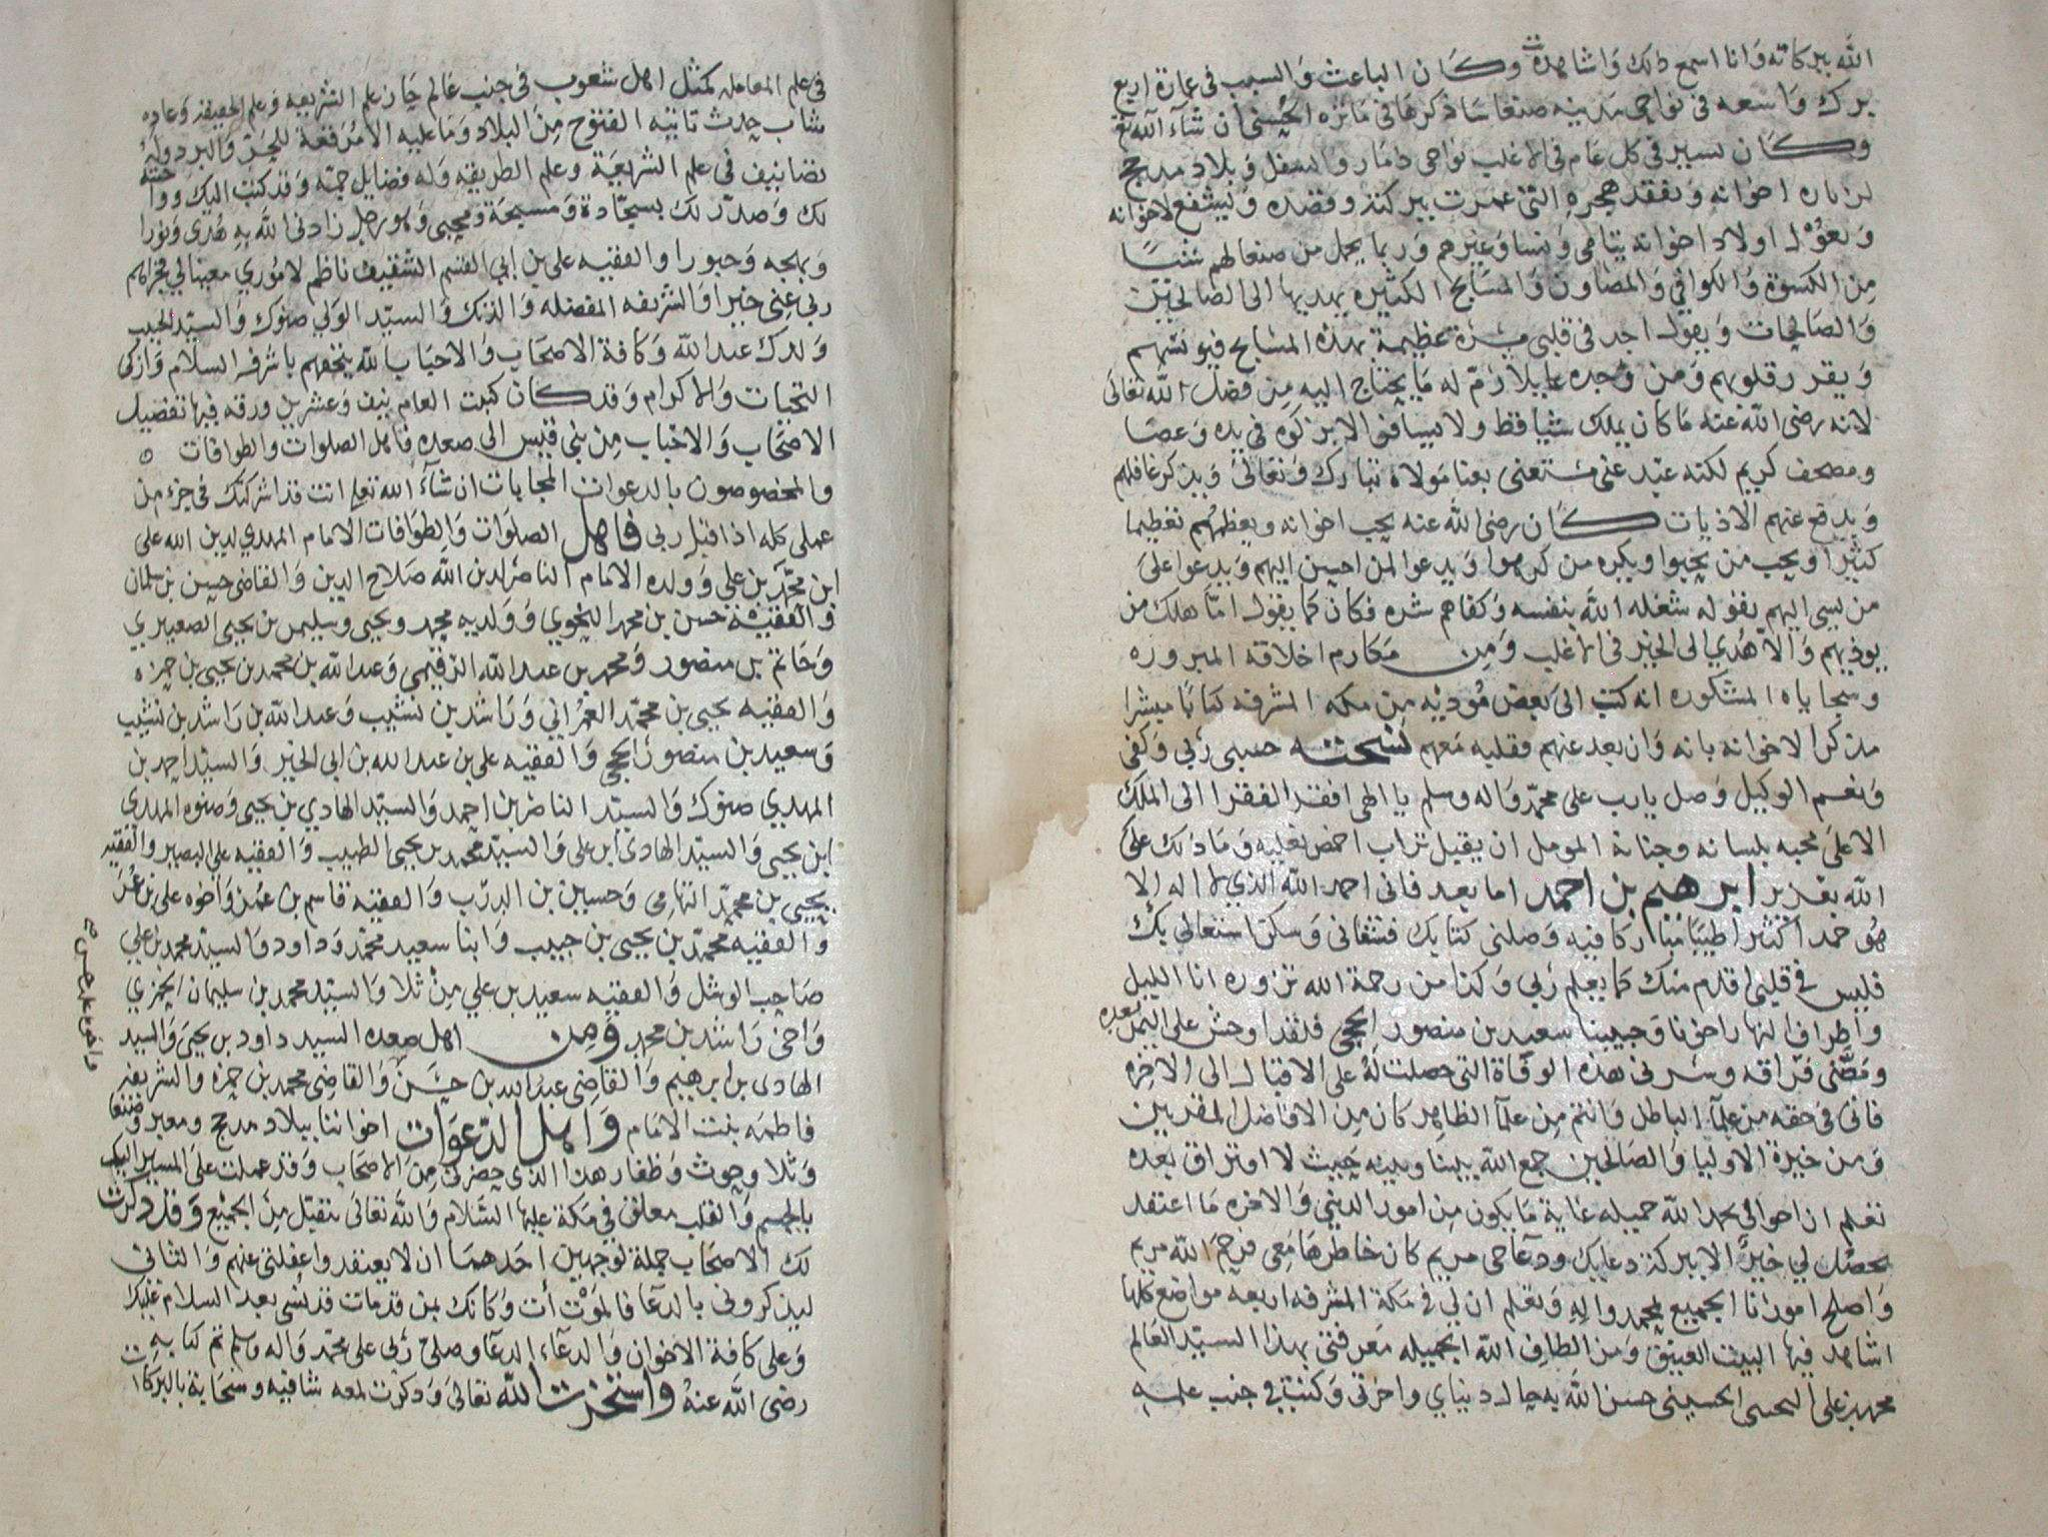 الله ببركاته وانا اسمع ذلك واشاهده وكان الباعث والسبب في عمارة اربع
برك واسعه في نواحي مدينه صنعا ساذكرها في مآثره الحسنى ان شآء الله تع
وكان يسير في كل عام في الاغلب نواحي ذمار والسفل وبلاد مذحج
لزياره اخوانه وتفقد هجره التي عمرت ببركته وقصده ويشفع لاخوانه
ويعول اولاد اخوانه يتامى ونسا وغيرهم وربما يحمل من صنعا لهم شيا
من الكسوة والكوافي والمصاون والمسابح الكثيره يهديها الى الصالحين
والصالحات ويقول اجد في قلبي مسرة عظيمة بهذه المسابح فيونسهم
ويقر قلوبهم ومن وجده عايلا رم له ما يحتاج اليه من فضل الله تعالى
لانه رضي الله عنه ما كان يملك شيا قط ولا يسافر الا بركوه في يده وعصا
ومصحف كريم لكنه عبد غني مستغني بغنا مولاه تبارك وتعالى ويذكر غافلهم
ويدفع عنهم الاذيات كان رضي الله عنه يحب اخوانه ويعظمهم تعظيما
كثيرا ويحب من يحبوا ويكره من كرهوا ويدعوا لمن احسن اليهم ويدعوا على
من يسي اليهم بقوله شغله الله بنفسه وكفاهم شره فكان كما يقول اما هلك من
يوذيهم والا هدي الى الخير في الاغلب ومن مكارم اخلاقه المبروره
وسجاياه المشكوره انه كتب الى بعض مودته من مكه المشرفه كتابا مبشرا
مذكرا لاخوانه بانه وان بعد عنهم فقلبه معهم نسخته حسبي ربي وكفى
ونعم الوكيل وصل يارب على محمد واله وسلم يا الهي افقر الفقرا الى الملك
الاعلى محبه بلسانه وجنانه المومل ان يقبل تراب اخمص نعليه وما ذلك على
الله بعزيز ابرهيم بن احمد اما بعد فاني احمد الله الذي لا اله الا
هو حمدا كثيرا طيبا مباركا فيه وصلني كتابك فشفاني وسكن اشتعالي بك
فليس في قلبي اقدم منك كما يعلم ربي وكذا من رحمة الله تزوره انا الليل
واطراف النهار اخونا وحبيبنا سعيد بن منصور الحجي فلقد اوحش على اليمن بعده
ومضني فراقه وسرني هذه الوفاة التي حصلت له على الاقبال الى الاخره
فاني في حقه من علمآ الباطل وانتم من علمآ الظاهر كان من الافاضل المقربين
ومن خيرة الاوليا والصالحين جمع الله بيننا وبينه بحيث لا افتراق بعده
تعلم ان احوالي بحمد الله جميله غاية ما يكون من امور الدنيى والاخره ما اعتقد
يحصل لي خيرا الا ببركة دعايك ودعآ حي مريم كان خاطرها معي فرحم الله مريم
واصلح امورنا الجميع بمحمد واله وتعلم ان لي في مكة المشرفه اربعه مواضع كلها
اشاهد فيها البيت العتيق ومن الطاف الله الجميله معرفتي بهذا السيد العالم
محمد بن علي الحسني حسن الله به حال دنياي واخرتي وكنت في جنب علمه
في علم المعامله كمثل اهل شعوب في جنب عالم حاز علم الشريعه وعلم الحقيقه وعاده
شاب حدث تانيه الفتوح من البلاد وما عليه الا مرقعة للحر والبرد وله
تصانيف في علم الشريعة وعلم الطريقه وله فضايل جمة وقد كتب اليك وواخيته
لك وصدر لك بسجادة ومسبحة ومحبي وهو رجل زادني الله به هدى ونورا
وبهجه وحبورا والفقيه علي بن ابي القسم الشقيف ناظم لاموري معينا لي فجزاهم
ربي عني خيرا والشريفه المفضله والدتك والسيد الولي صنوك والسيد الحبيب
ولدك عبد الله وكافة الاصحاب والاحباب بالله يتحفهم باشرف السلام وازكى
التحيات والاكرام وقد كان كتبت العام نيف وعشرين ورقه فيها تفضيل
الاصحاب والاحباب من بني قيس الى صعده فاهل الصلوات والطوافات
والمخصوصون بالدعوات المجابات ان شآء الله تعلم انت قد اشركتك في جزء من
عملي كله اذا قبل ربي فاهل الصلوات والطوافات الامام المهدي لدين الله علي
ابن محمد بن علي وولده الامام الناصر لدين الله صلاح الدين والقاضي حسين بن سلمان
والفقيه حسن بن محمد النحوي وولديه محمد ويحيى وسليمن بن يحيى الصعيدي
وحاتم بن منصور ومحمد بن عبد الله الرقيمي وعبد الله بن محمد بن يحيى بن حمزه
والفقيه يحيى بن محمد العمراني وراشد بن نشيب وعبد الله بن راشد بن نشيب
وسعيد بن منصور الحجي والفقيه علي بن عبد الله بن ابي الخير والسيد احمد بن
المهدي صنوك والسيد الناصر بن احمد والسيد الهادي بن يحيى وصنوه المهدي
ابن يحيى والسيد الهادي ابن علي والسيد محمد بن يحيى الطبيب والفقيه علي البصير والفقيه
يحيى بن محمد التهامي وحسين بن الدرب والفقيه قاسم بن عمر واخوه علي بن عمر
والفقيه محمد بن يحيى بن حبيب وابنا سعيد محمد وداود والسيد محمد بن علي
صاحب الوشل والفقيه سعيد بن علي من ثلا والسيد محمد بن سليمان الحمزي
واخي راشد بن محمد ومن اهل صعده السيد داود بن يحيى والسيد
الهادي بن ابرهيم والقاضي عبد الله بن حسن والقاضي محمد بن حمزه والشريفه
فاطمه بنت الامام واهل الدعوات اخواننا ببلاد مذحج ومعبر وصنعا
وثلا وحوث وظفار هذا الذي حضرني من الاصحاب وقد عملت على المسير اليك
بالجسم والقلب معلق في مكة عليها السلام والله تعالى يتقبل من الجميع وقد ذكرت
لك الاصحاب جملة لوجهين احدهما ان لا يعتقدوا غفلتي عنهم والثاني
ليذكروني بالدعآ فالموت آت وكانك بمن قد مات قد نسي بعد السلام عليك
وعلى كافة الاخوان والدعآء الدعآ وصلى ربي على محمد واله وسلم تم كتابه
رضي الله عنه واستخرت الله تعالى وذكرت لمعه شافيه وسحابة بالبركات